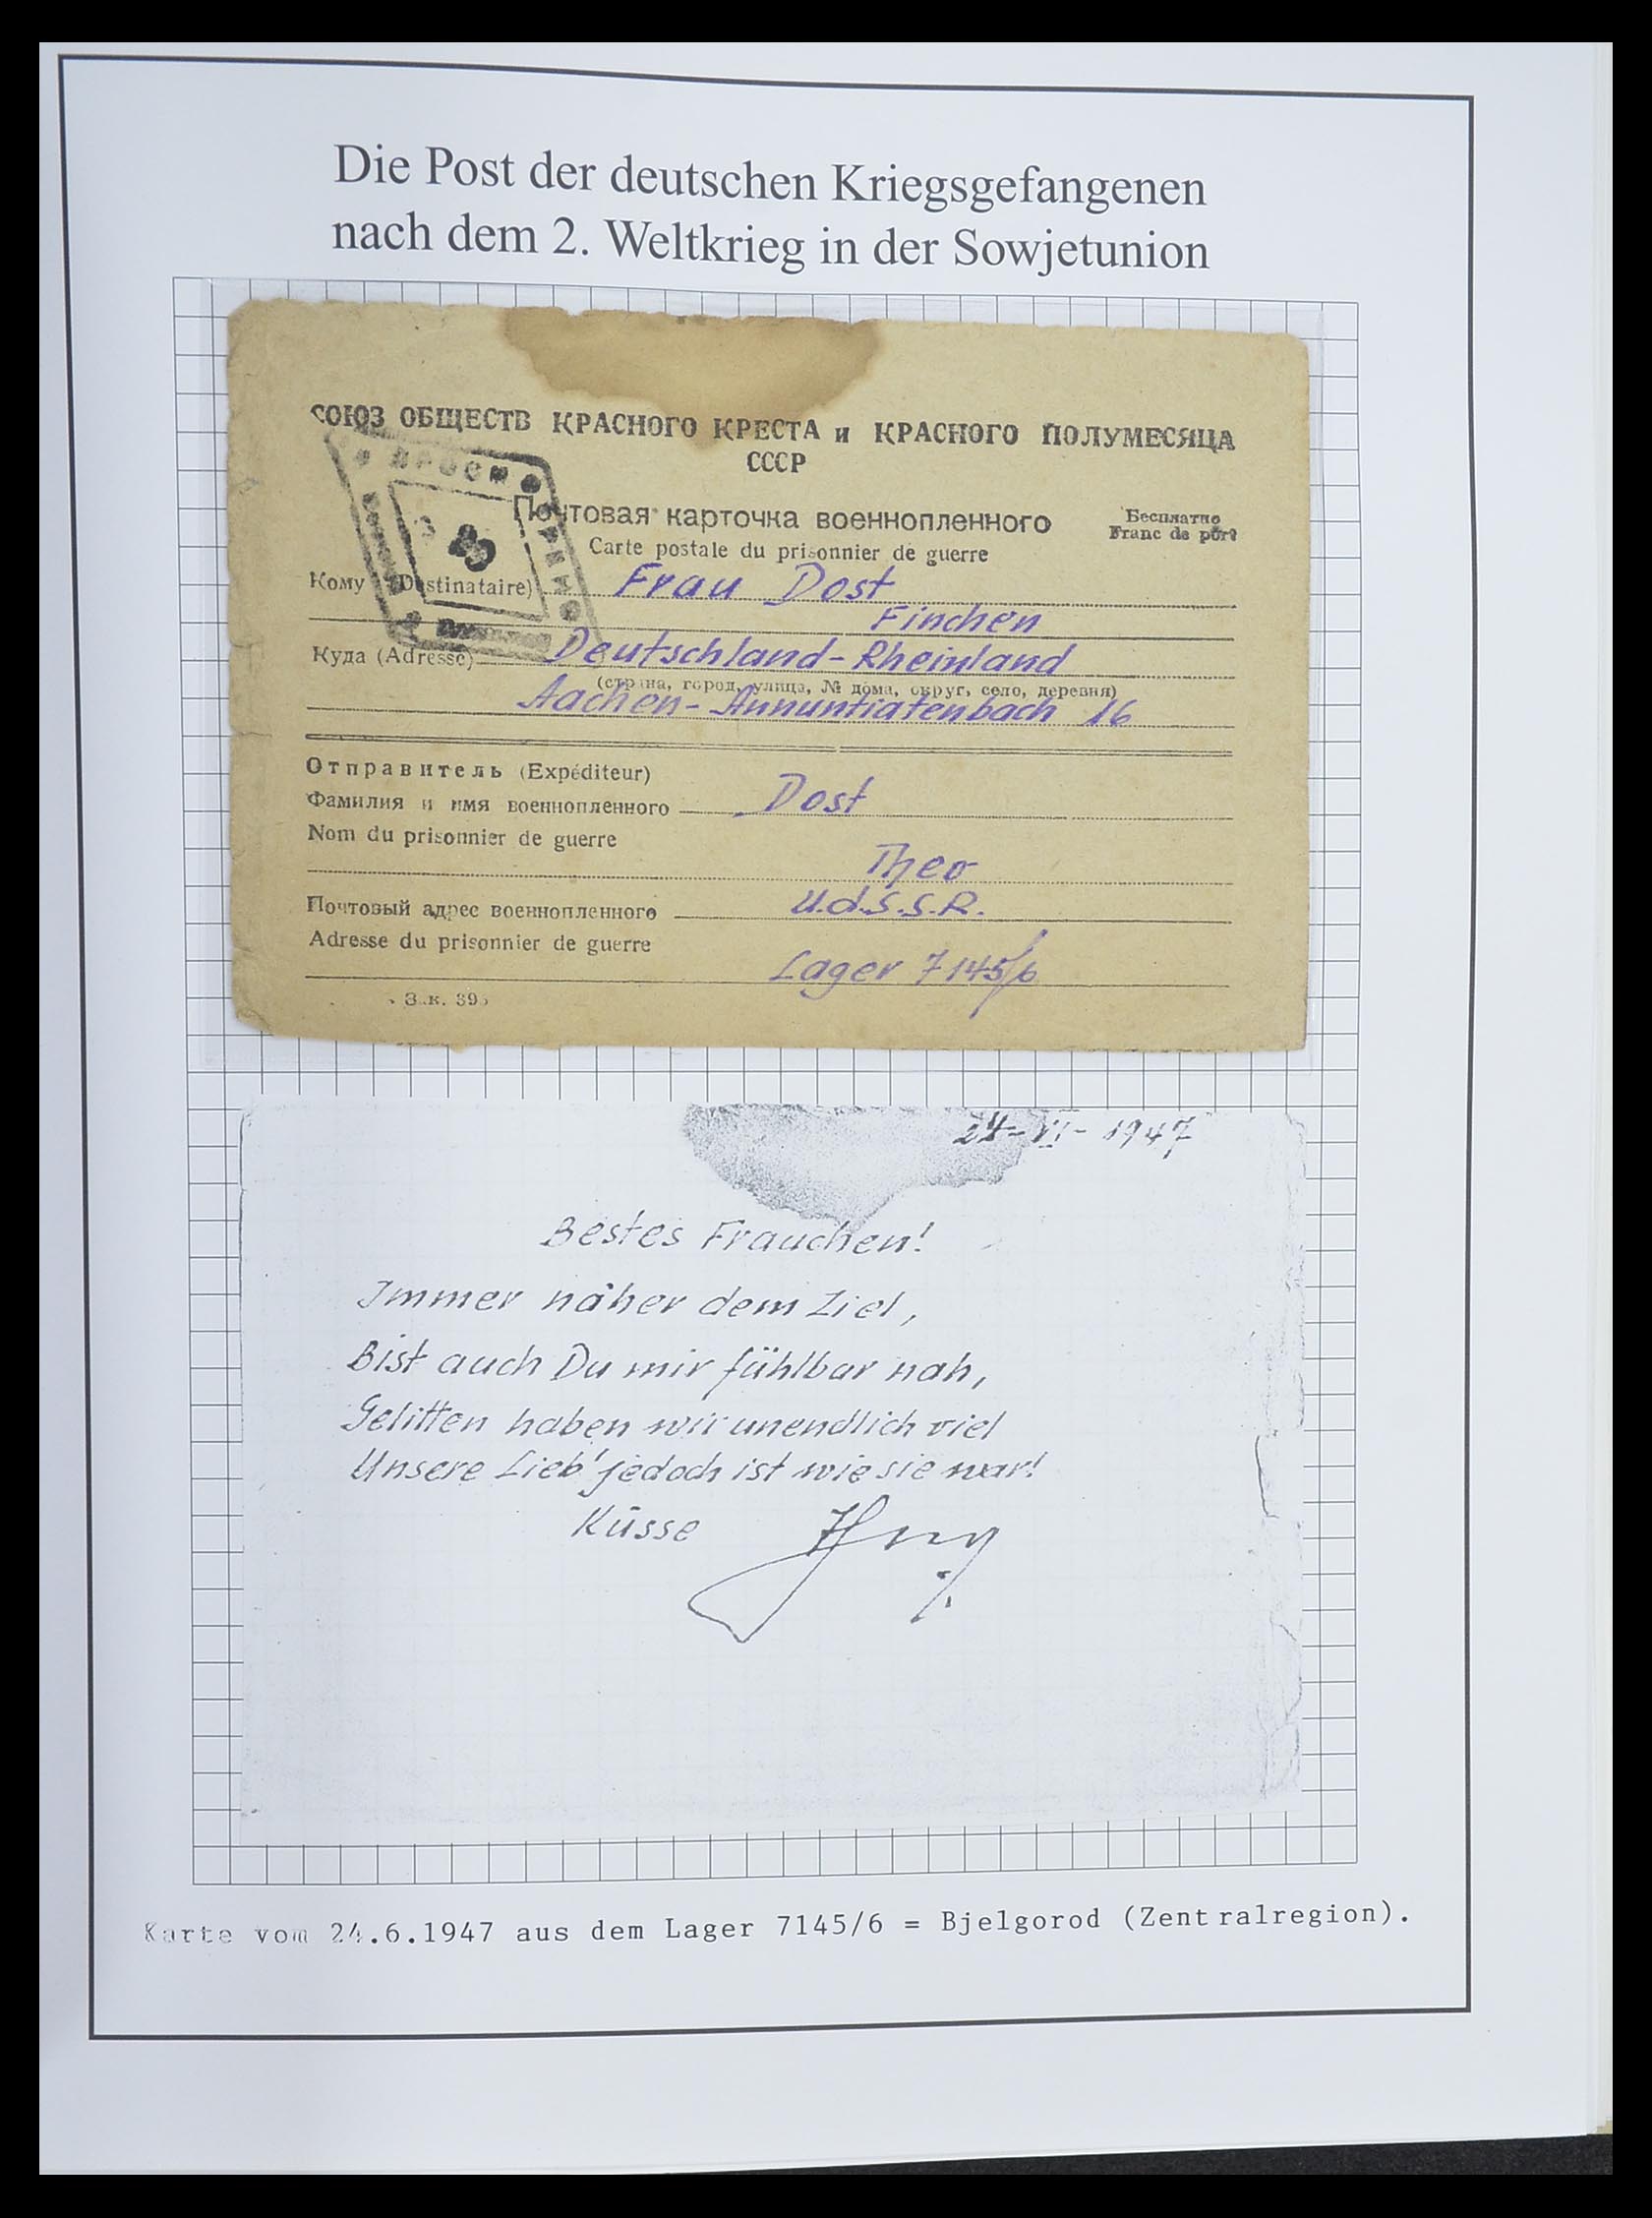 Die Post der deutschen Kriegsgefangenen
nach dem 2. Weltkrieg in der Sowjetunion
СОЮЗ ОБЩЕСТВ КРАСНОГО КРЕСТА и КРАСНОГО ПОЛУМЕСЯЦА
СССР
Почтовая карточка военнопленного
Бесплатно
Carte postale du prisonnier de guerre
Franc de port
Кому (Destinataire) Frau Dost
Finchen
Куда (Adresse) Deutschland-Rheinland
(страна, город, улица, № дома, округ, село, деревня)
Aachen-Annuntiatenbach 16
Отправитель (Expéditeur)
Фамилия и имя военнопленного Dost
Nom du prisonnier de guerre
Theo
Почтовый адрес военнопленного U.d.S.S.R.
Adresse du prisonnier de guerre
Lager 7145/6
Зак. 395
24-VI-1947
Bestes Frauchen!
Immer näher dem Ziel,
Bist auch Du mir fühlbar nah,
Gelitten haben wir unendlich viel
Unsere Lieb' jedoch ist wie sie war!
Küsse
Karte vom 24.6.1947 aus dem Lager 7145/6 = Bjelgorod (Zentralregion).